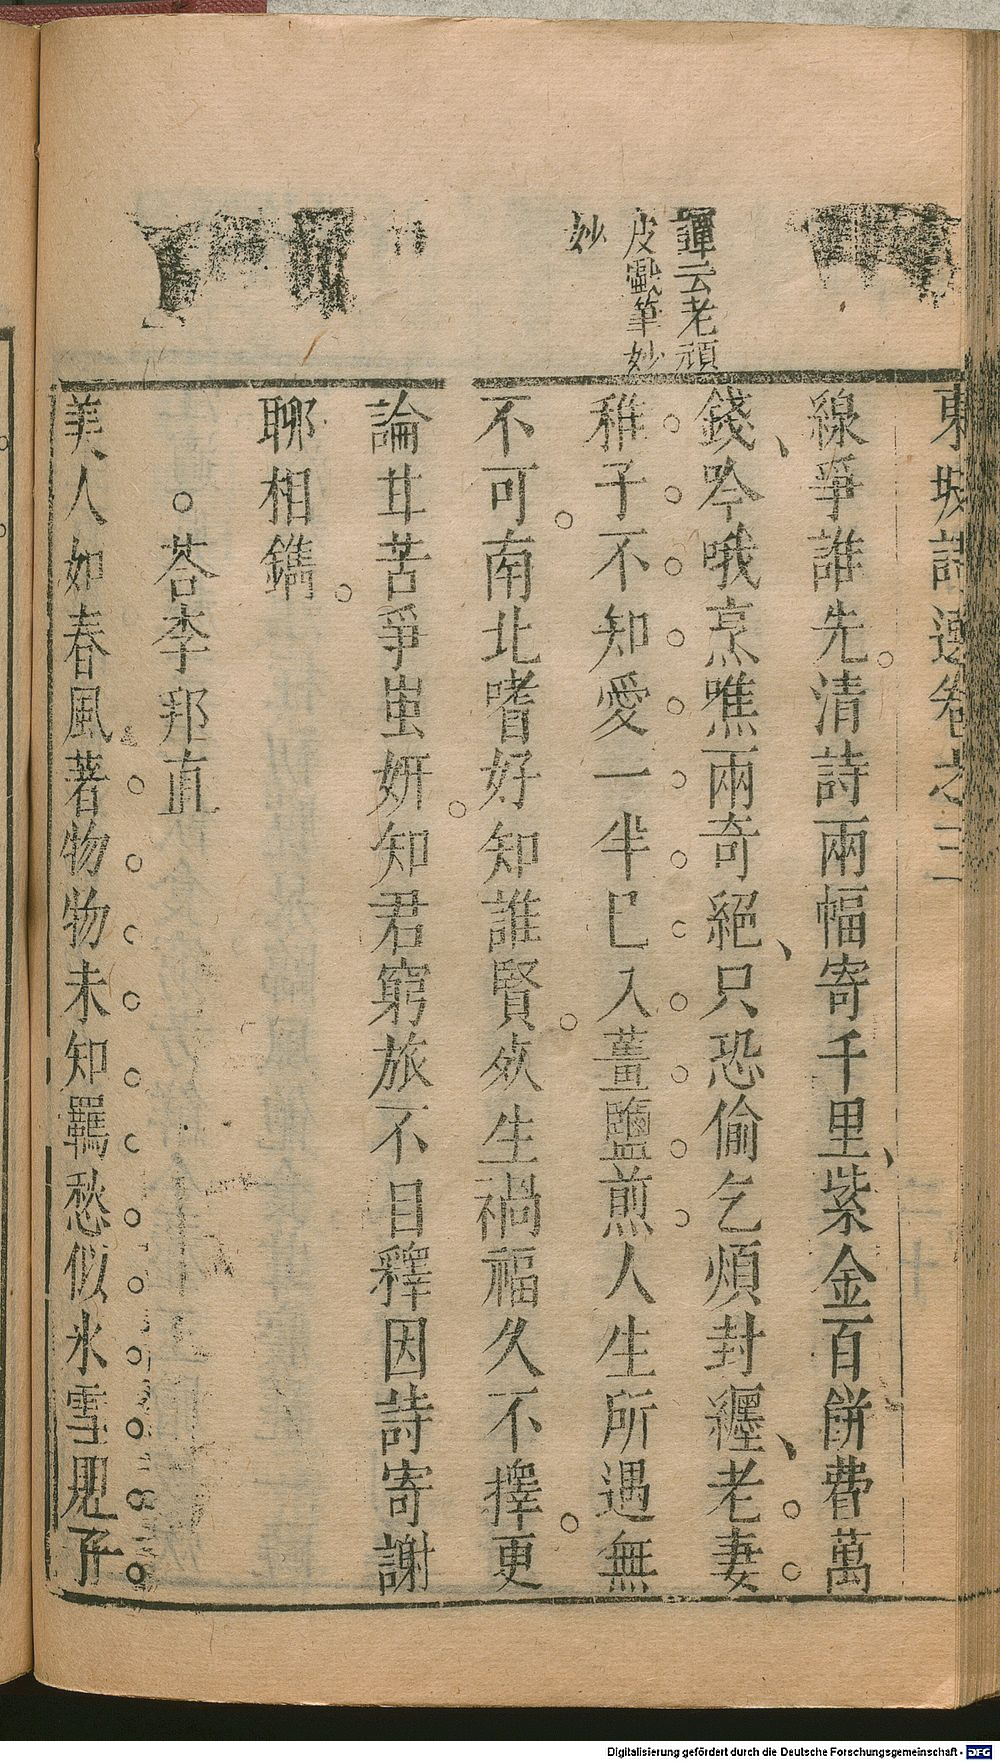 東坡詩選卷之三
譚云老頑
皮戲筆妙
妙
線爭誰先清詩兩幅寄千里紫金百餅費萬
錢吟哦烹噍兩奇絕只恐偷乞煩封纏老妻
稚子不知愛一半已入薑鹽煎人生所遇無
不可南北嗜好知誰賢死生禍福久不擇更
論甘苦爭蚩妍知君窮旅不自釋因詩寄謝
聊相鐫
答李邦直
美人如春風著物物未知羈愁似氷雪見子
二十
Digitalisierung gefördert durch die Deutsche Forschungsgemeinschaft - DFG